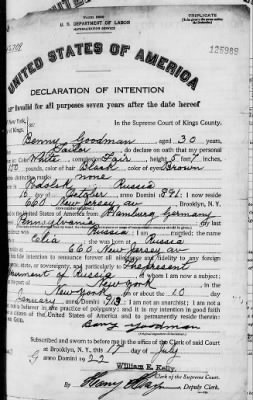 U. S. DEPARTMENT OF LABOR
NATURALIZATION SERVICE
TRIPLICATE
125989
UNITED STATES OF AMERICA
DECLARATION OF INTENTION
Invalid for all purposes seven years after the date hereof
New York,
of Kings,
In the Supreme Court of Kings County.
Benny Goodman aged 30 years,
Tailor do declare on oath that my personal
Color White complexion Fair height 5 feet 7 inches,
pounds, color of hair Black color of eyes Brown
marks none
Russia
day of October anno Domini 891; I now reside
660 New Jersey av Brooklyn, N. Y.
United States of America from Hamburg Germany
Pennsylvania my last
Russia; I am married; the name
Elia; she was born in Russia
660 New Jersey av
intention to renounce forever all allegiance and fidelity to any foreign
state, or sovereignty, and particularly to The present
Government of Russia of whom I am now a subject;
New York in the
New York on or about the 10 day
January anno Domini 913; I am not an anarchist; I am not a
believer in the practice of polygamy; and it is my intention in good faith
a citizen of the United States of America and to permanently reside therein:
Benny Goodman
Subscribed and sworn to before me in the office of the Clerk of said Court
at Brooklyn, N. Y., this 17 day of July
anno Domini 1922
William E. Kelly
Clerk of the Supreme Court.
By Deputy Clerk.